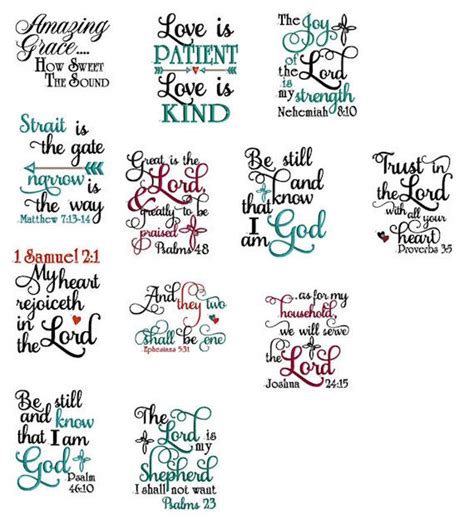 Amazing
Grace....
How Sweet
The Sound
Love is
PATIENT
Love is
KIND
The Joy
of the
Lord
is
my strength
Nehemiah 8:10
Strait is
the gate
narrow is
the way
Matthew 7:13-14
Great is the
Lord,
& greatly to be
praised
Psalms 48
Be still
and
know
that
I am
God
Trust in
the
Lord
with all your
heart
Proverbs 3:5
1 Samuel 2:1
My heart
rejoiceth
in the
Lord
And
they two
shall be one
Ephesians 5:31
...as for my
household,
we will serve
the
Lord
Joshua 24:15
Be still
and know
that I am
God
Psalm
46:10
The
Lord is
my
Shepherd
I shall not want
Psalms 23